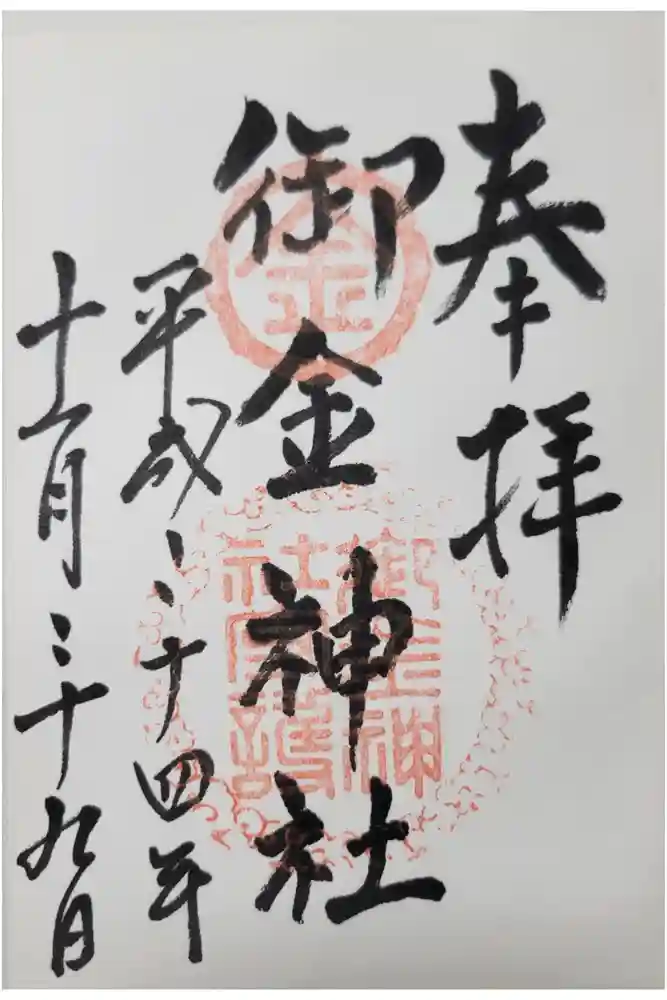 奉拝
御金神社
平成二十四年
十一月二十九日
金
御金神